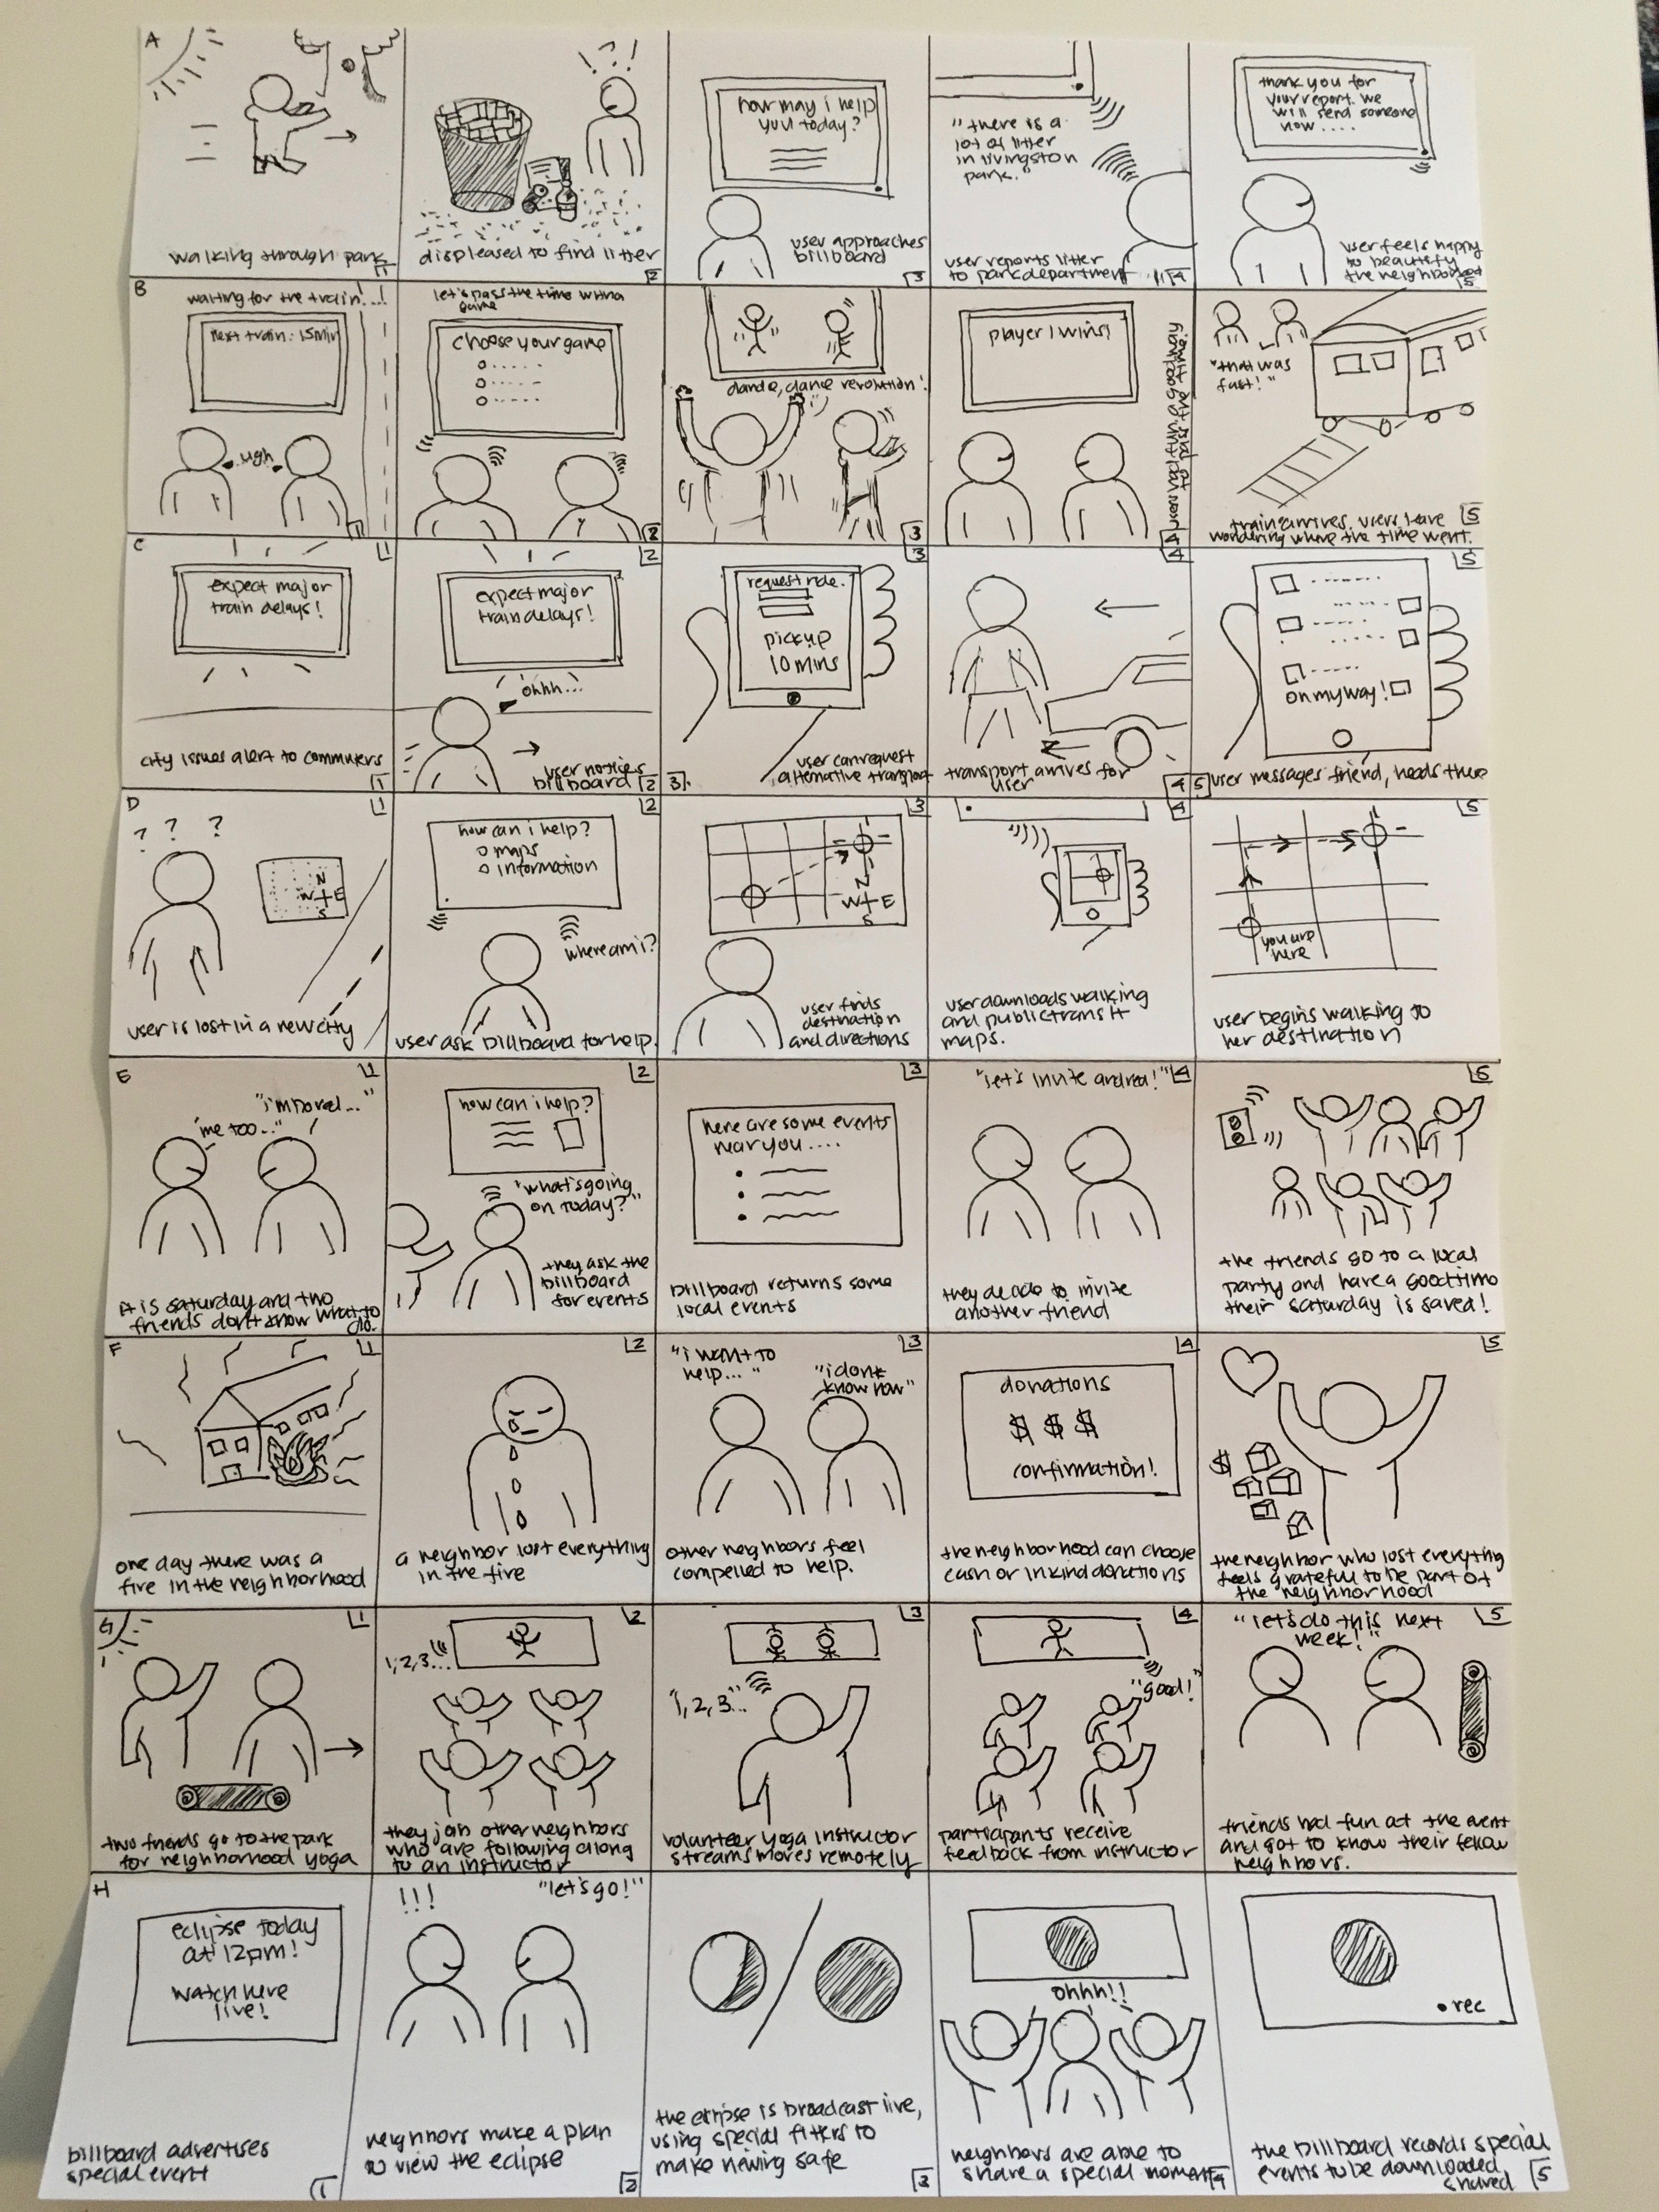 A
walking through park
1
!?!
displeased to find litter
2
how may i help
you today?
user approaches
billboard
3
"there is a
lot of litter
in livingston
park."
user reports litter
to park department
4
thank you for
your report. we
will send someone
now....
user feels happy
to beautify
the neighborhood
5
B
waiting for the train!...!
next train: 15min
ugh
1
let's pass the time with a
game
choose your game
2
dance, dance revolution!
3
player 1 wins!
users had fun & good way
to pass the time!
4
"that was
fast!"
train arrives. users leave
wondering where the time went.
5
C
1
expect major
train delays!
city issues alert to commuters
1
2
expect major
train delays!
ohhh...
user notices
billboard
2
3
request ride.
pickup
10 mins
user can request
alternative transport
3.
4
transport arrives for
user
4
5
on my way!
user messages friend, heads there
5
D
1
? ? ?
N
W E
S
user is lost in a new city
2
how can i help?
maps
information
where am i?
user ask billboard for help.
3
N
W E
S
user finds
destination
and directions
4
user downloads walking
and public transit
maps.
5
you are
here
user begins walking to
her destination
E
1
"i'm bored..."
"me too..."
it is saturday and two
friends don't know what to
do.
2
how can i help?
"what's going
on today?"
they ask the
billboard
for events
3
here are some events
near you....
billboard returns some
local events
"let's invite andrea!"
4
they decide to invite
another friend
5
the friends go to a local
party and have a good time
their saturday is saved!
F
1
one day there was a
fire in the neighborhood
2
a neighbor lost everything
in the fire
3
"i want to
help..."
"i dont
know how"
other neighbors feel
compelled to help.
4
donations
$ $ $
confirmation!
the neighborhood can choose
cash or inkind donations
5
$
the neighbor who lost everything
feels grateful to be part of
the neighborhood
G
1
two friends go to the park
for neighborhood yoga
2
1,2,3...
they join other neighbors
who are following along
to an instructor
3
"1,2,3..."
volunteer yoga instructor
streams moves remotely
4
"good!"
participants receive
feedback from instructor
5
"let's do this next
week!"
friends had fun at the event
and got to know their fellow
neighbors.
H
eclipse today
at 12pm!
watch here
live!
billboard advertises
special event
1
!!!
"let's go!"
neighbors make a plan
to view the eclipse
2
the eclipse is broadcast live,
using special filters to
make viewing safe
3
ohhh!!
neighbors are able to
share a special moment
4
rec
the billboard records special
events to be downloaded,
shared
5